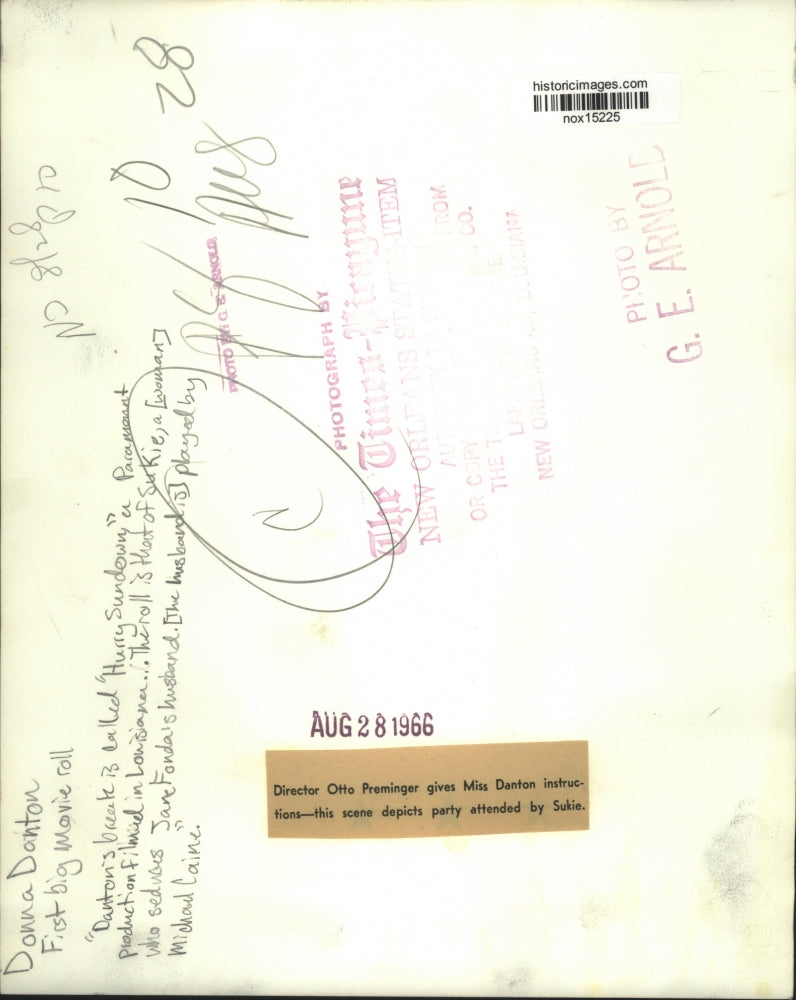 historicimages.com
nox15225
PHOTO BY
G. E. ARNOLD
28
10
Aug
PHOTO BY G. E. ARNOLD
PHOTOGRAPH BY
The Times-Picayune
NEW ORLEANS STATES-ITEM
OR COPY
CO.
NEW ORLEANS 40, LOUISIANA
C
AUG 28 1966
Director Otto Preminger gives Miss Danton instruc-
tions—this scene depicts party attended by Sukie.
Donna Danton
First big movie roll
"Danton's break is called "Hurry Sundown," a Paramount
production filmed in Louisiana... The roll is that of Sukie, a [woman]
who seduces Jane Fonda's husband. [The husband is] played by
Michael Caine."